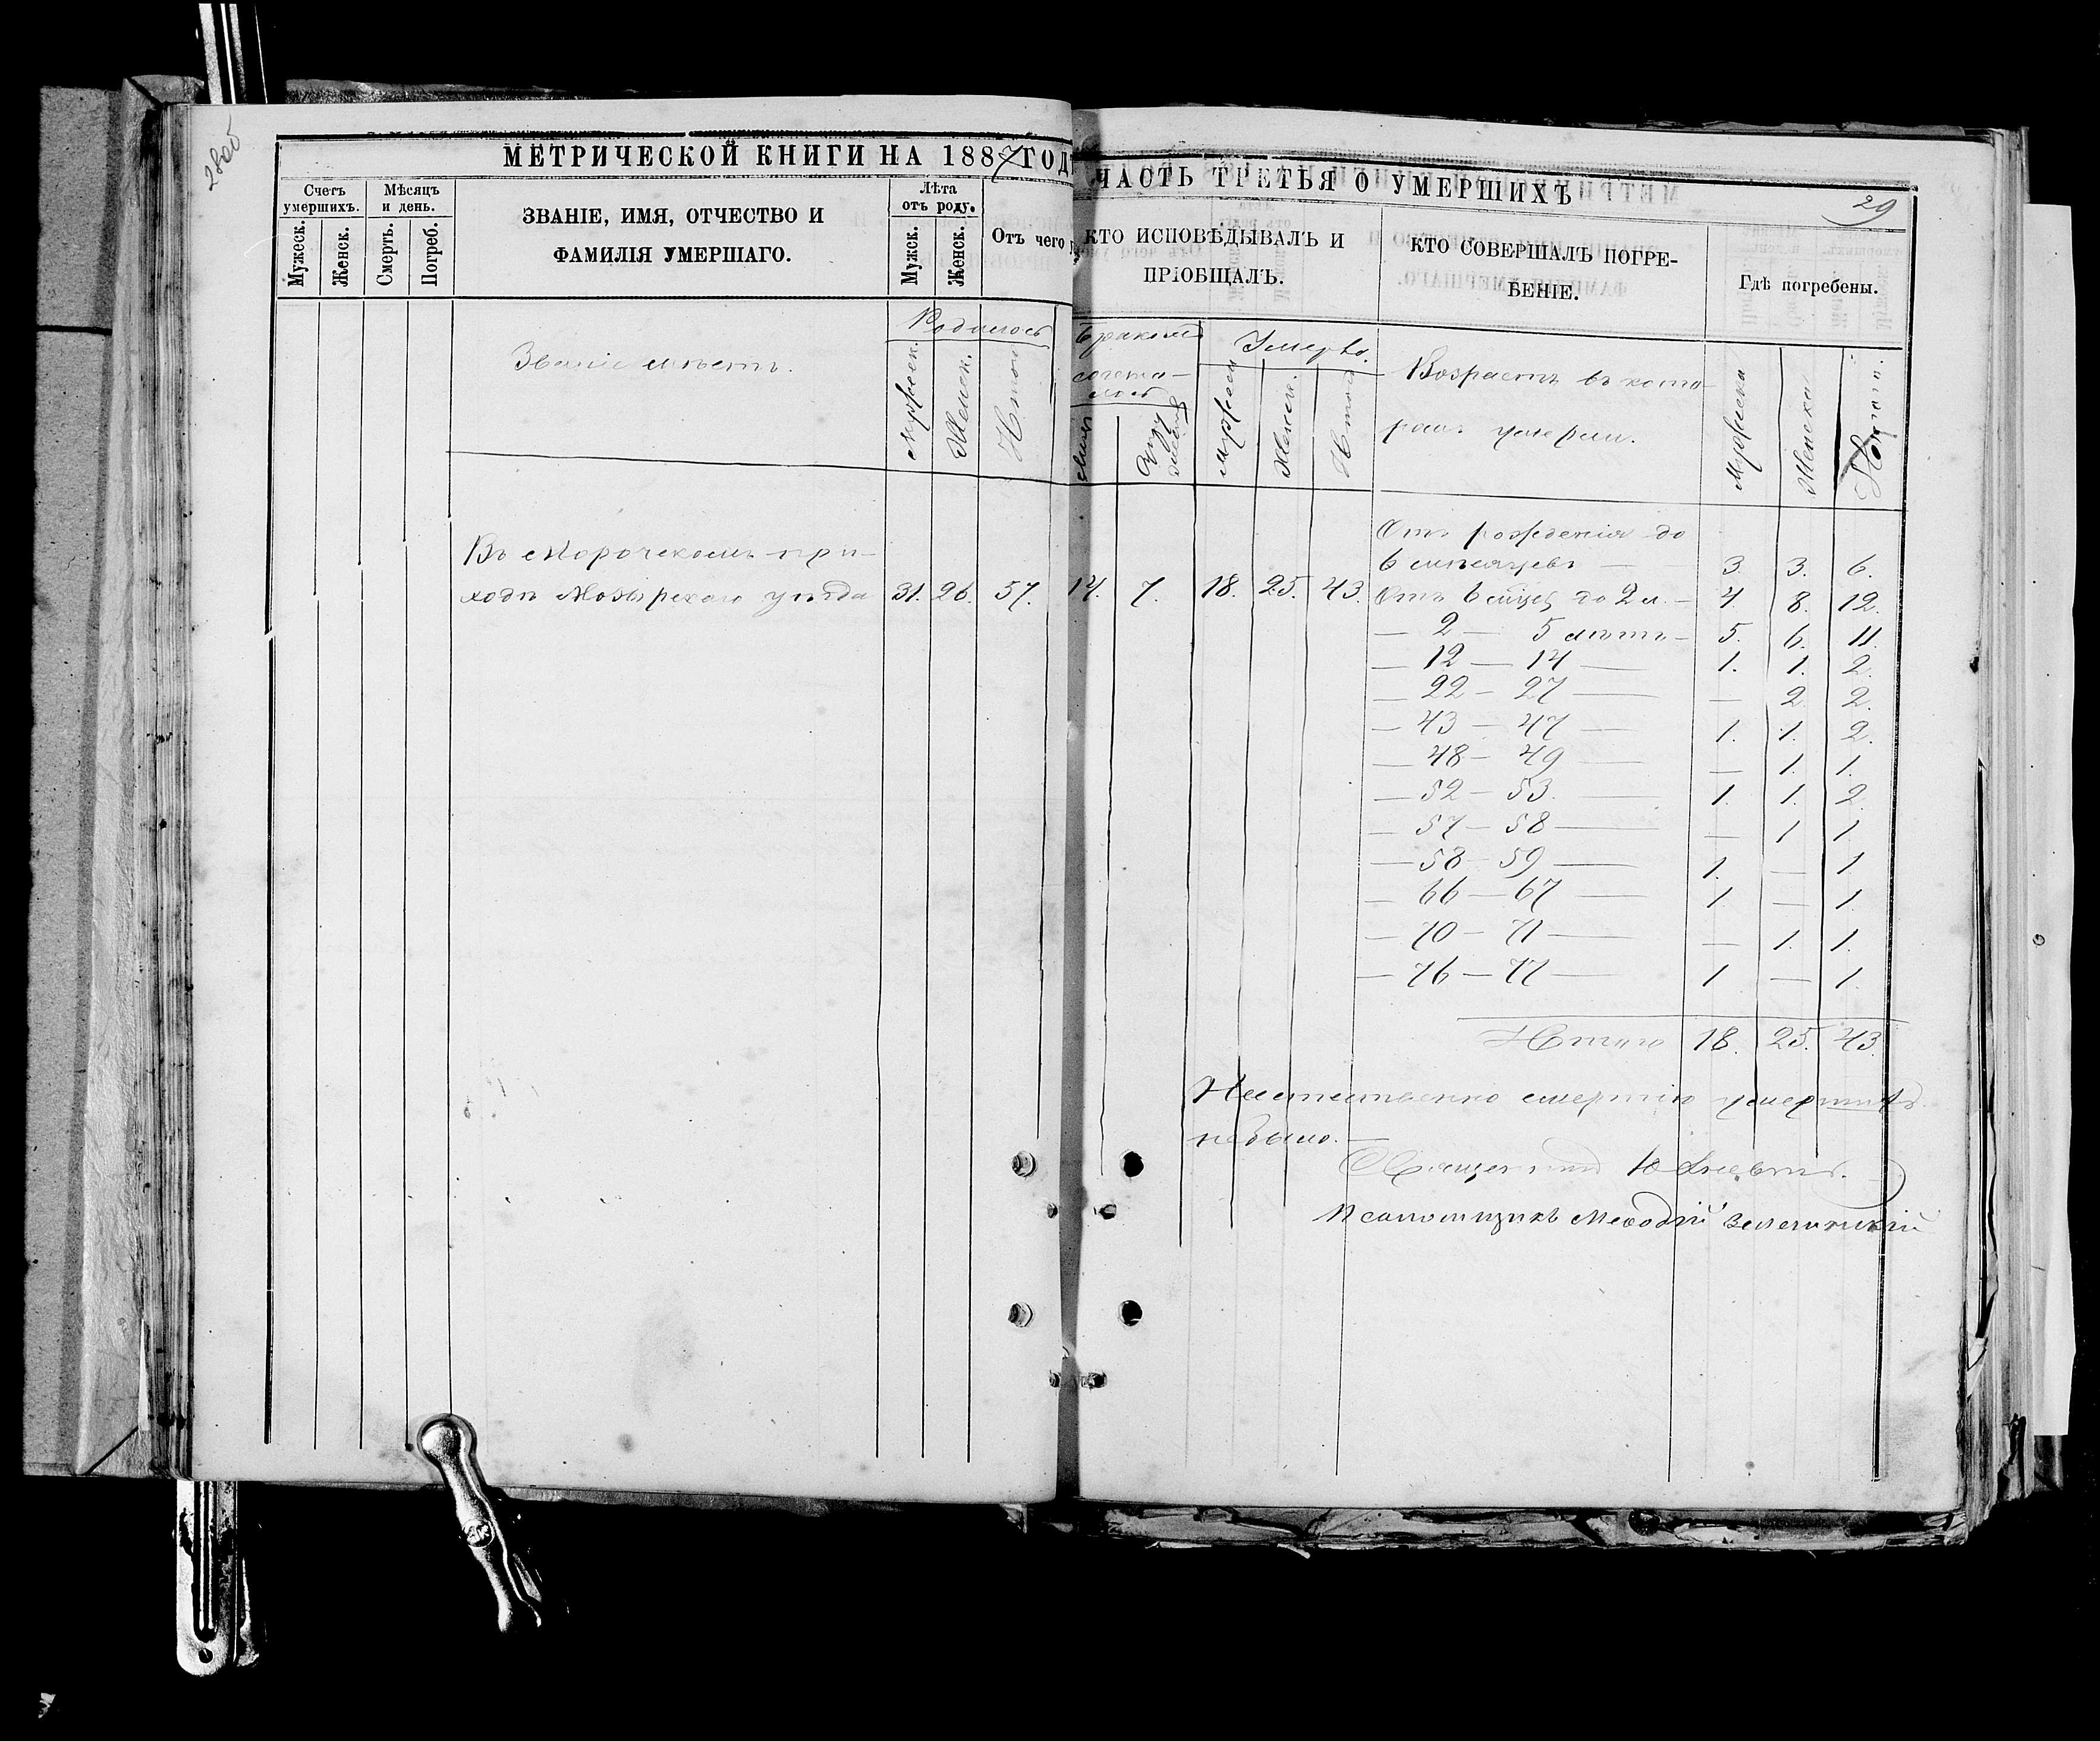 28об
МЕТРИЧЕСКОЙ КНИГИ НА 1887 ГОДЪ
Счетъ умершихъ.
Мѣсяцъ и день.
ЗВАНІЕ, ИМЯ, ОТЧЕСТВО И
ФАМИЛІЯ УМЕРШАГО.
Лѣта отъ роду.
Отъ чего
Мужеск.
Женск.
Смерть.
Погреб.
Мужск.
Женск.
Званіе мѣстъ.
Родилось
Мужеск.
Женск.
Итого
Въ Скорочскомъ при-
ходѣ Мозырскаго уѣзда 31. 26. 57.
ЧАСТЬ ТРЕТЬЯ О УМЕРШИХЪ
29
КТО ИСПОВѢДЫВАЛЪ И
ПРІОБЩАЛЪ.
КТО СОВЕРШАЛЪ ПОГРЕ-
БЕНІЕ.
Гдѣ погребены.
Бракомъ
сочета-
лось
Умерло.
Мужеск
Женск.
Итого
Возрастъ въ кото-
ромъ умерли.
Мужеска
Женска
Итого
14. 7. 18. 25. 43.
Отъ рожденія до
6 мѣсяцевъ — 3. 3. 6.
Отъ 6 мѣсц. до 2 л. — 4. 8. 12.
— 2 — 5 лѣтъ — 5. 6. 11.
— 12 — 14 — 1. 1. 2.
— 22 — 27 — — 2 2.
— 43 — 47 — 1. 1. 2.
— 48 — 49 — — 1. 1.
— 52 — 53. — 1. 1. 2.
— 57 — 58 — — 1 1.
— 58 — 59 — 1. — 1
— 66 — 67 — 1. — 1.
— 70 — 71 — — 1. 1.
— 76 — 77 — 1 — 1.
Итого 18. 25. 43.
Неестественно смертію умершихъ
небыло. —
Священникъ Ю
Псаломщикъ Меѳодій Зеленинскій